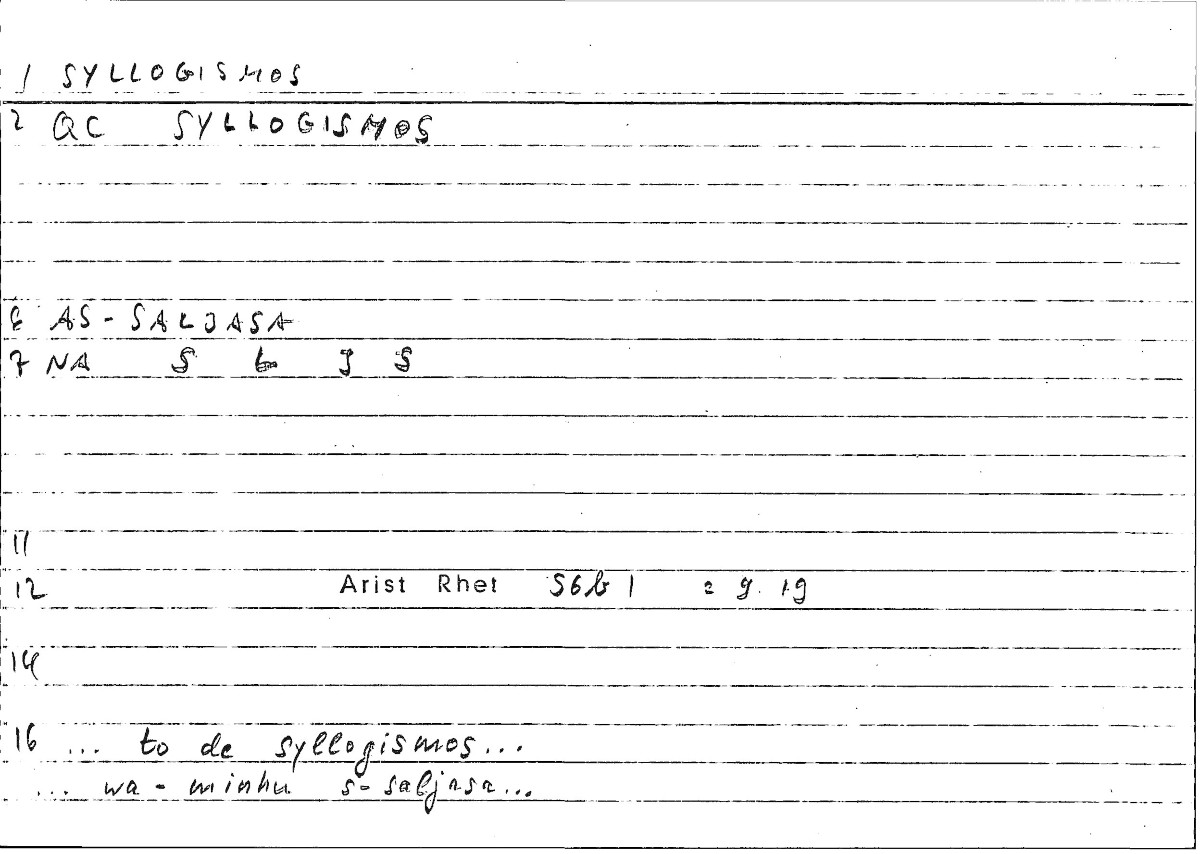 1 SYLLOGISMOS
2 QC SYLLOGISMOS
6 AS-SALJASA
7 NA S L J S
11
12 Arist Rhet 56b1 = 9.19
14
16 ... to de syllogismos...
... wa-minhu s-saljasa...